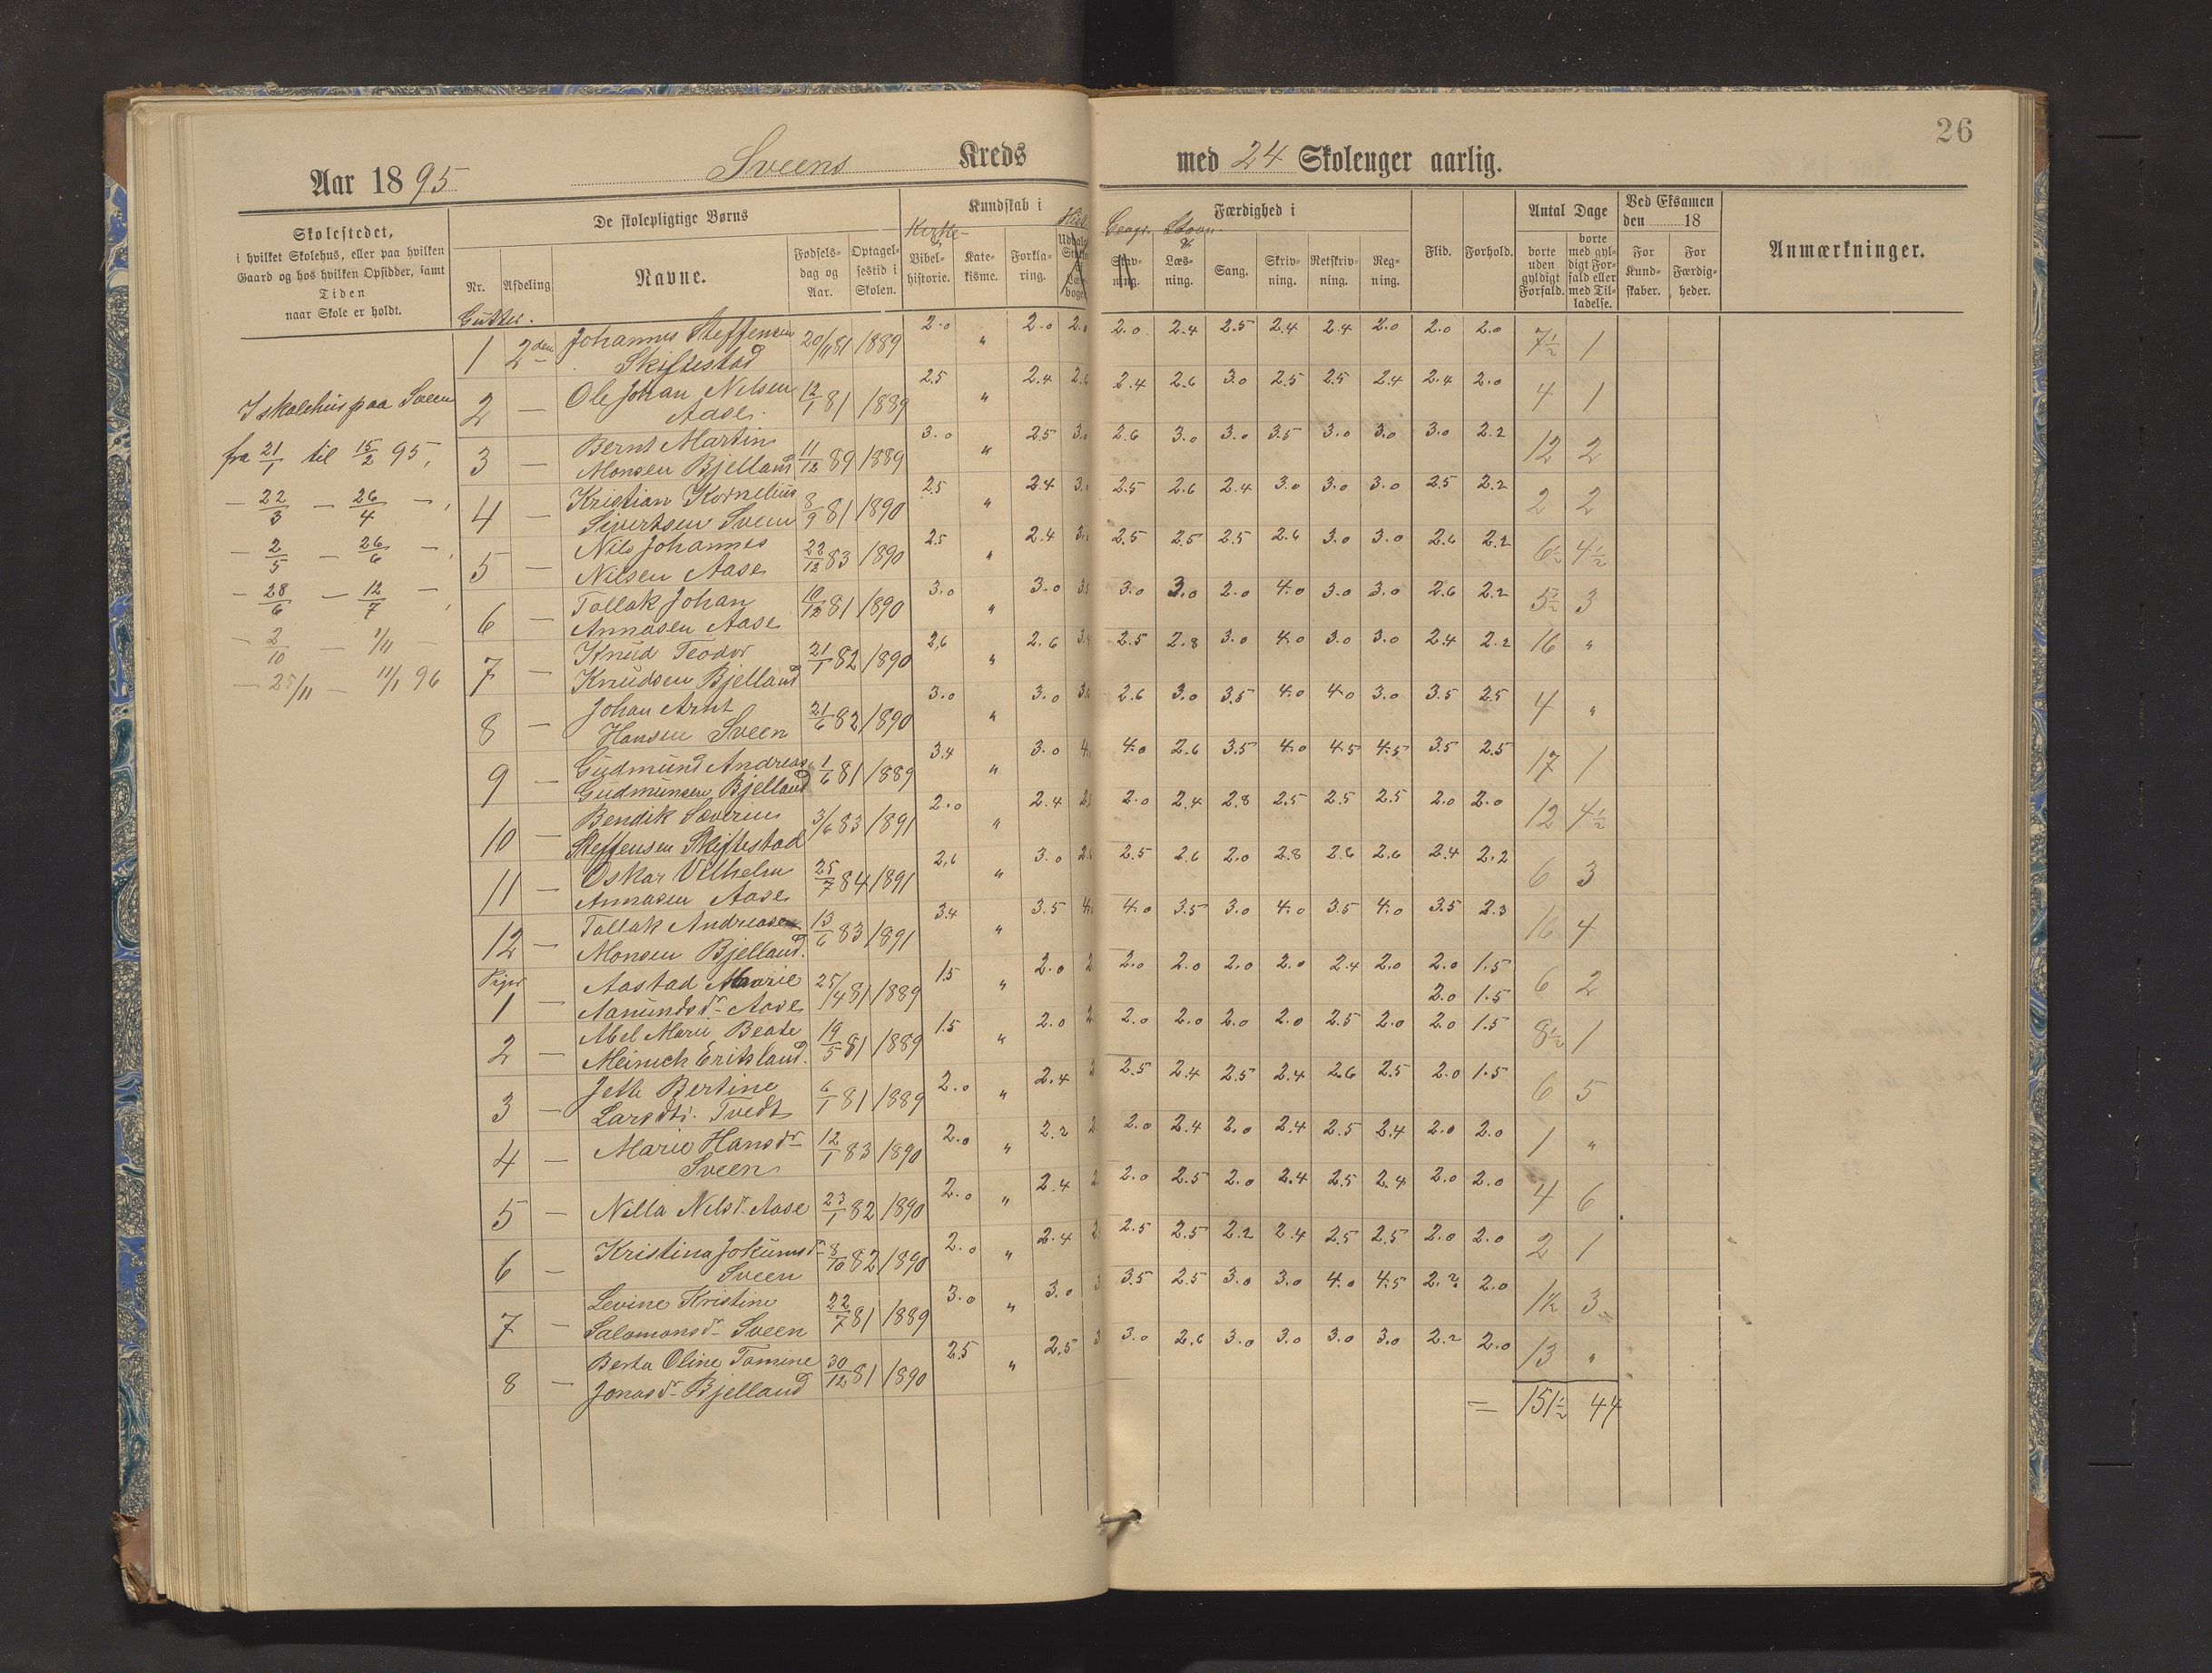 26
Aar 1895 Sveens Kreds med 24 Skoleuger aarlig.
Skolestedet,
i hvilket Skolehus, eller paa hvilken
Gaard og hos hvilken Opsidder, samt
Tiden
naar Skole er holdt.
De skolepligtige Børns
Nr.
Afdeling
Navne.
Fødsels-
dag og
Aar.
Optagel-
sestid i
Skolen.
Kundskab i
Kirke-
&
Bibel-
historie.
Kate-
kisme.
Forkla-
ring.
Færdighed i
Geogr.
Stav-
ning.
&
Læs-
ning.
Sang.
Skriv-
ning.
Retskriv-
ning.
Reg-
ning.
Flid.
Forhold.
Antal Dage
borte
uden
gyldigt
Forfald.
borte
med gyl-
digt For-
fald eller
med Til-
ladelse.
Ved Eksamen
den 18
For
Kund-
skaber.
For
Færdig-
heder.
Anmærkninger.
I skolehus paa Sveen
fra 21/1 til 15/2 95,
— 22/3 — 26/4 —,
— 2/5 — 26/6 —,
— 28/6 — 12/7 —,
— 2/10 — 1/11 —
— 25/11 — 11/1 96
Gutter.
1 2den Johannes Steffensen 20/11 81 1889 2.0 " 2.0 2.0 2.0 2.4 2.5 2.4 2.4 2.0 2.0 2.0 7½ 1
Skiftestad
2 — Ole Johan Nilsen 12/1 81 1889 2.5 " 2.4 2.6 2.4 2.6 3.0 2.5 2.5 2.4 2.4 2.0 4 1
Aase
3 — Bernt Martin 11/12 89 1889 3.0 " 2.5 3.0 2.6 3.0 3.0 3.5 3.0 3.0 3.0 2.2 12 2
Monsen Bjelland
4 — Kristian Kornelius 8/9 81 1890 2.5 " 2.4 3. 2.5 2.6 2.4 3.0 3.0 3.0 2.5 2.2 2 2
Sivertsen Sveen
5 — Nils Johannes 22/12 83 1890 2.5 " 2.4 3. 2.5 2.5 2.5 2.6 3.0 3.0 2.6 2.2 6½ 4½
Nilsen Aase
6 — Tollak Johan 10/12 81 1890 3.0 " 3.0 3.5 3.0 3.0 2.0 4.0 3.0 3.0 2.6 2.2 5½ 3
Annasen Aase
7 — Knud Teodor 21/1 82 1890 2.6 " 2.6 3. 2.5 2.8 3.0 4.0 3.0 3.0 2.4 2.2 16 "
Knudsen Bjelland
8 — Johan Arnt 21/6 82 1890 3.0 " 3.0 3. 2.6 3.0 3.5 4.0 4.0 3.0 3.5 2.5 4 "
Hansen Sveen
9 — Gudmund Andreas 1/6 81 1889 3.4 " 3.0 4. 4.0 2.6 3.5 4.0 4.5 4.5 3.5 2.5 17 1
Gudmunsen Bjelland
10 — Bendik Severin 3/6 83 1891 2.0 " 2.4 2.5 2.0 2.4 2.8 2.5 2.5 2.5 2.0 2.0 12 4½
Steffensen Skiftestad
11 — Oskar Vilhelm 25/7 84 1891 2.6 " 3.0 2.6 2.5 2.6 2.0 2.8 2.6 2.6 2.4 2.2 6 3
Annasen Aase
12 — Tollak Andreasen 13/6 83 1891 3.4 " 3.5 4. 4.0 3.5 3.0 4.0 3.5 4.0 3.5 2.3 16 4
Monsen Bjelland.
Piger
1 — Aastad Marie 25/4 81 1889 1.5 " 2.0 2 2.0 2.0 2.0 2.0 2.4 2.0 2.0 1.5 6 2
Aamundsdr Aase 2.0 1.5
2 — Abel Marie Beate 19/5 81 1889 1.5 " 2.0 2 2.0 2.0 2.0 2.0 2.5 2.0 2.0 1.5 8½ 1
Meinich Eritsland.
3 — Jette Bertine 6/1 81 1889 2.0 " 2.4 2 2.5 2.4 2.5 2.4 2.6 2.5 2.0 1.5 6 5
Larsdtr. Tvedt
4 — Marie Hansdr 12/1 83 1890 2.0 " 2.2 2 2.0 2.4 2.0 2.4 2.5 2.4 2.0 2.0 1 "
Sveen
5 — Nilla Nilsdr Aase 23/1 82 1890 2.0 " 2.4 2 2.0 2.5 2.0 2.4 2.5 2.4 2.0 2.0 4 6
6 — Kristina Jokumsdr 8/10 82 1890 2.0 " 2.4 2. 2.5 2.5 2.2 2.4 2.5 2.5 2.0 2.0 2 1
Sveen
7 — Levine Kristine 22/7 81 1889 3.0 " 3.0 3 3.5 2.5 3.0 3.0 4.0 4.5 2.2 2.0 1½ 3
Salomonsdr Sveen
8 — Berta Oline Tomine 30/12 81 1890 2.5 " 2.5 3 3.0 2.6 3.0 3.0 3.0 3.0 2.2 2.0 13 "
Jonasdr Bjelland
= 151½ 44